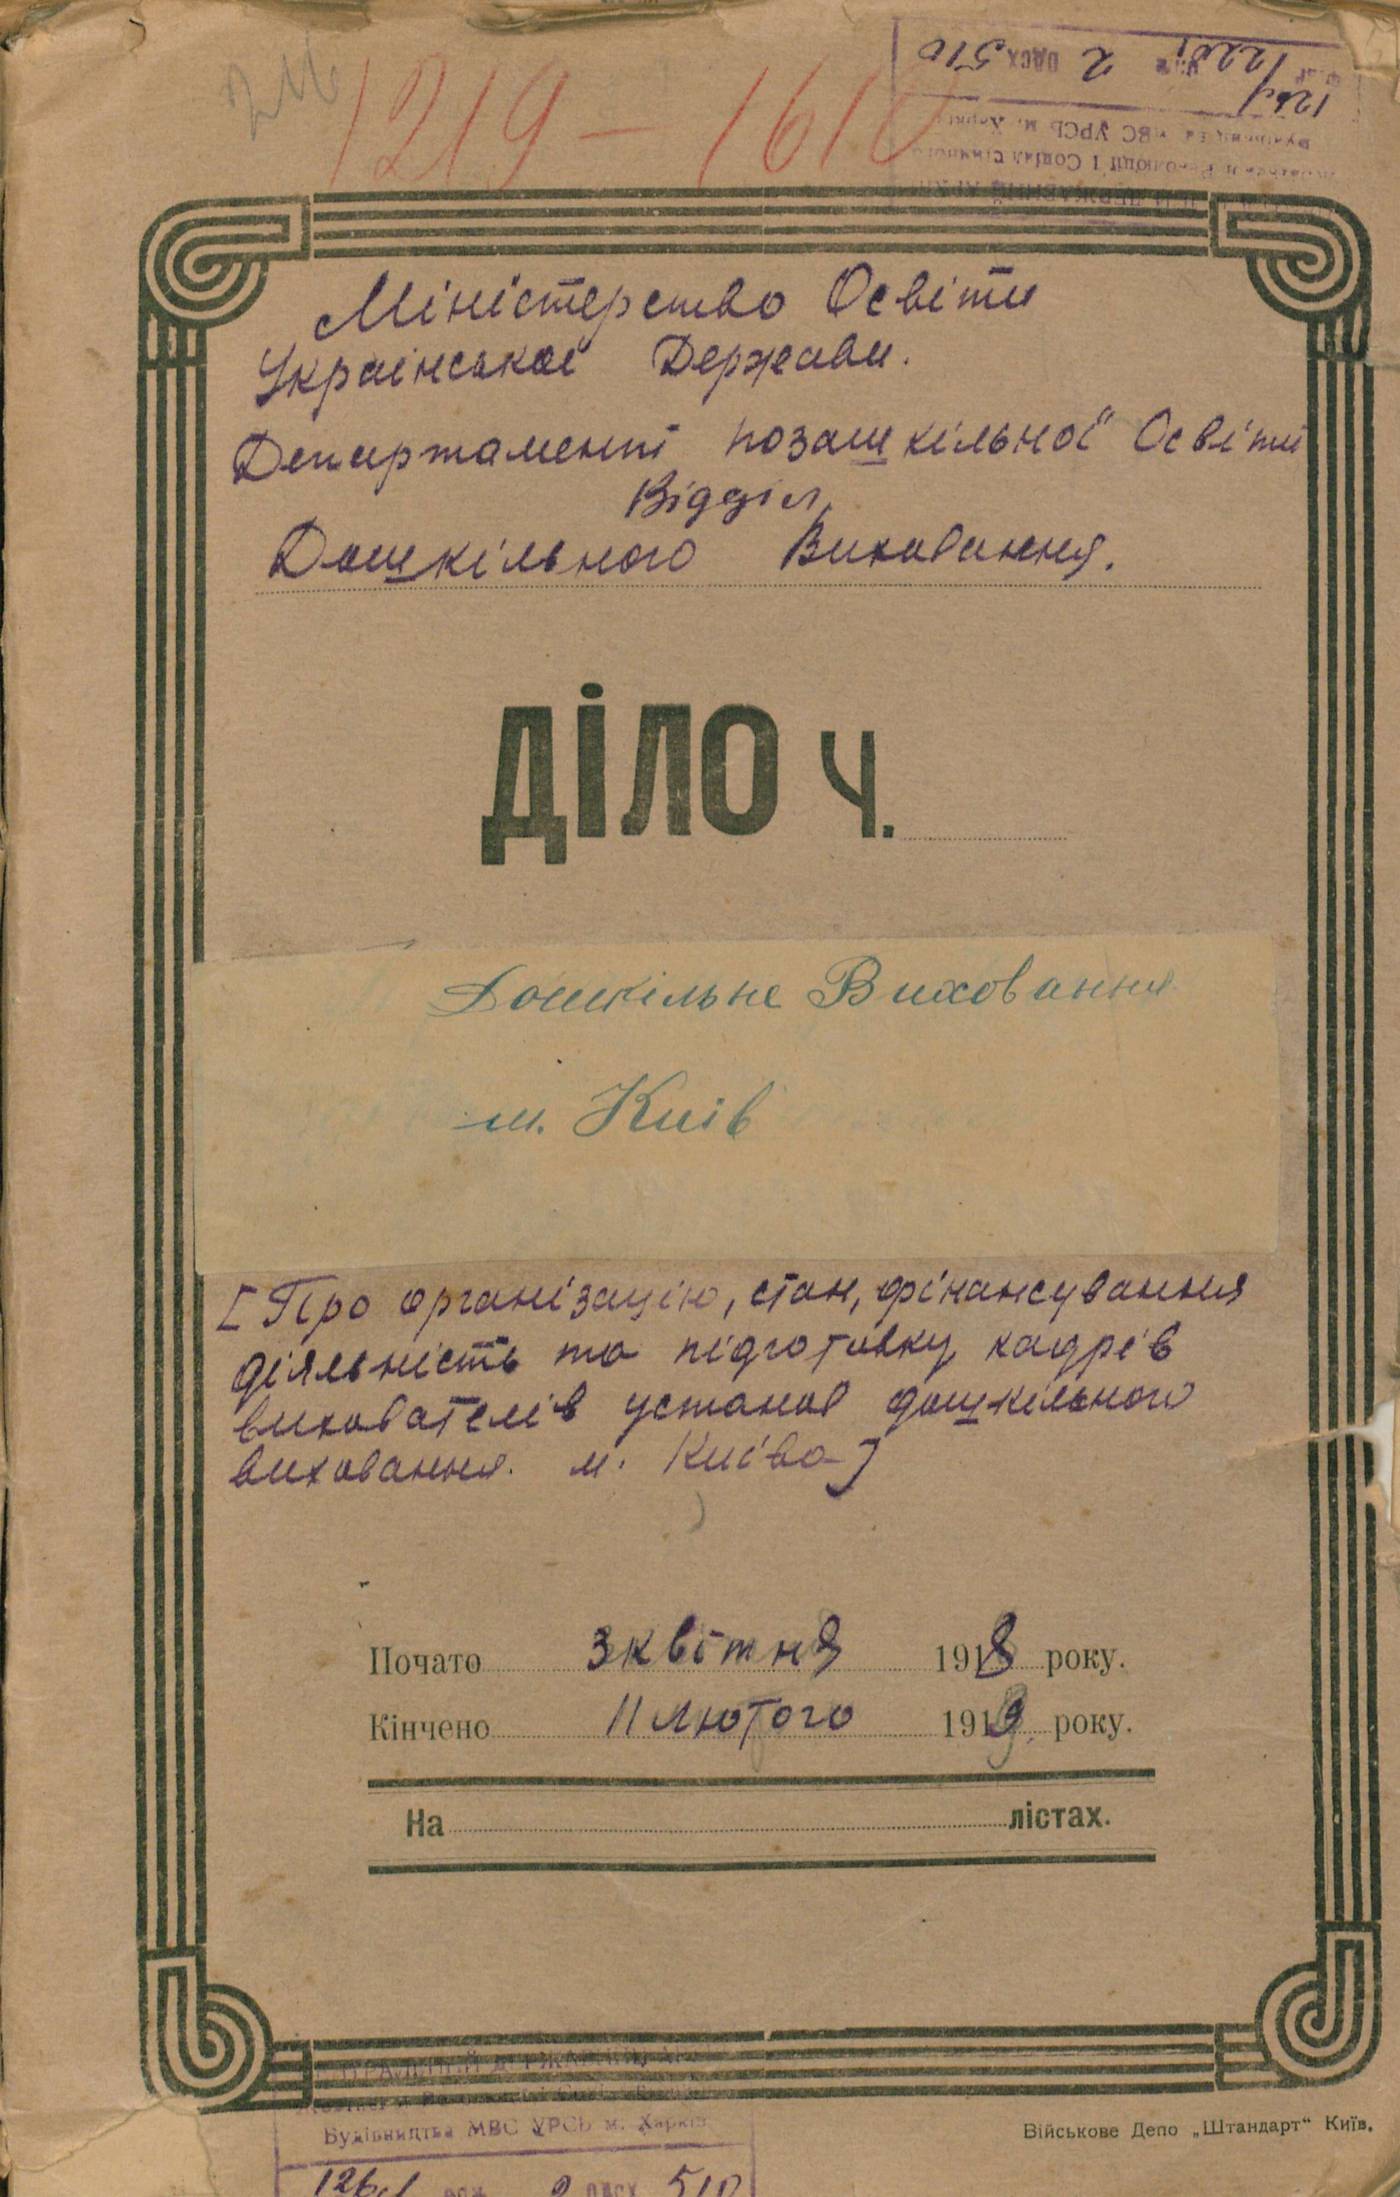 1219 – 1610
Міністерство Освіти
Української Держави.
Департамент позашкільної Освіти
Відділ
Дошкільного Виховання.
ДІЛО Ч.
Дошкільне Виховання
м. Київ
[Про організацію, стан, фінансування
діяльність та підготовку кадрів
вихователів установ дошкільного
виховання м. Київа]
Почато 3 квітня 1918 року.
Кінчено 11 лютого 1919 року.
На лістах.
Військове Депо „Штандарт“ Київ.
Будівництва МВС УРСР м. Харків
2 ОДСХ 510